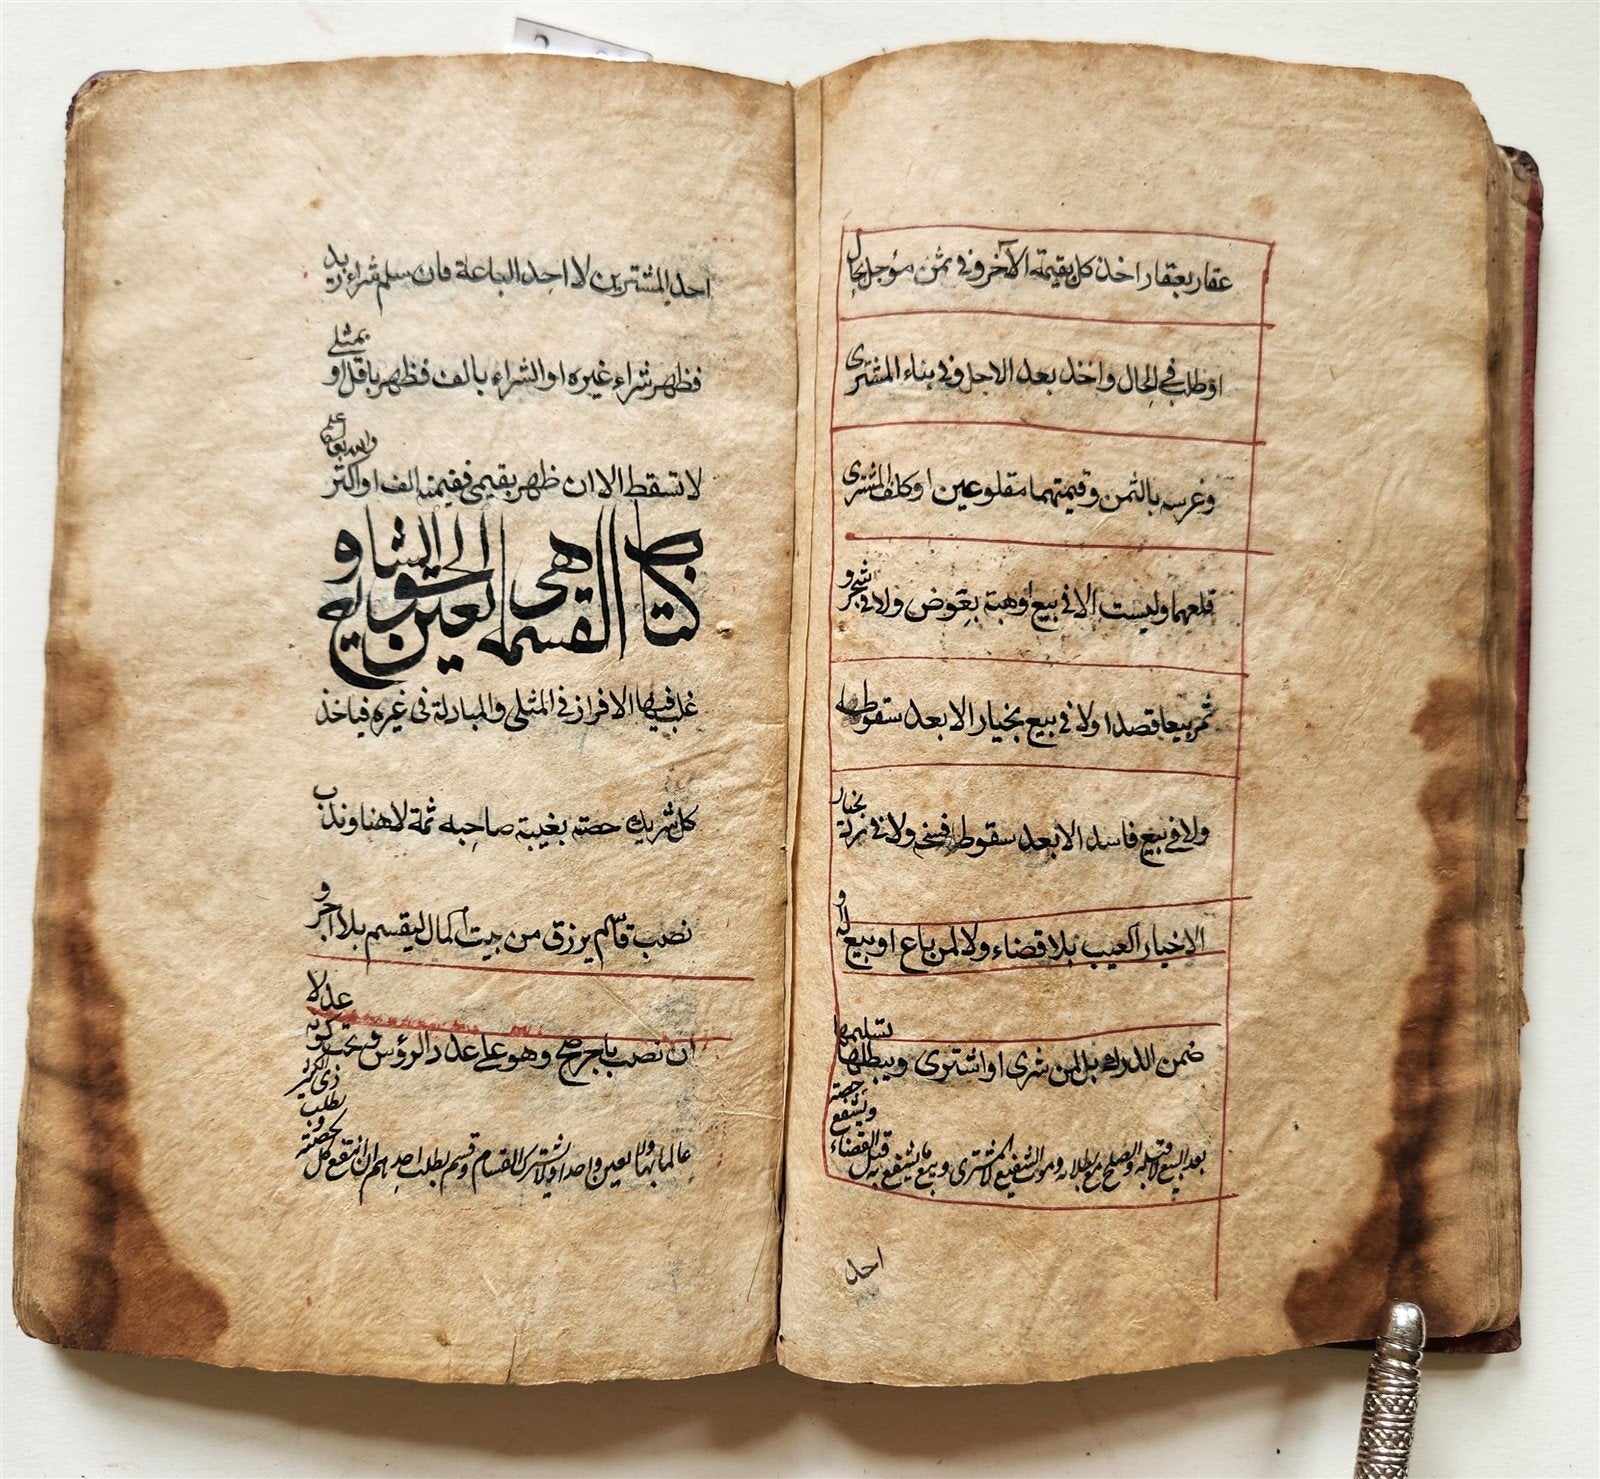 عقار بعقار اخذ كل بقيمة الآخر وفي ثمن مؤجل بحال
او طلب في الحال واخذ بعد الاجل وفي بناء المشتري
وغرسه بالثمن وقيمتهما مقلوعين او كلف المشتري
قلعهما وليست الا في بيع او هبة بعوض ولا في شجر و
ثمر بيعا قصدا ولا في بيع بخيار الا بعد سقوطه
ولا في بيع فاسد الا بعد سقوط فسخه ولا في بخيار
الا خيار العيب بلا قضاء ولا لمن باع او بيع له او
ضمن الدرك بل لمن شرى او اشترى ويبطلها تسليمها
بعد البيع لا قبله والصلح مع بطلانه وموت الشفيع لا المشتري وبيع ما يشفع به قبل القضاء ويشفع حصة
احد
احد المشترين لا احد الباعة فان سلم شراء زيد
فظهر شراء غيره او الشراء بالف فظهر باقل او بمثلي
لا تسقط الا ان ظهر بقيمي فقيمته الف او اكثر
كتاب القسمة هي تعيين الحق الشايع و
غلب فيها الافراز في المثلي والمبادلة في غيره فياخذ
كل شريك حصته بغيبة صاحبه ثمة لا هنا وندب
نصب قاسم يرزق من بيت المال ليقسم بلا اجر و
ان نصب باجر صح وهو على عدد الرؤس ويجب كونه عدلا
عالما بها ولا يعين واحد ولا يشترك القسام وقسم بطلب احدهم ان انتفع كل بحصته و بطلب ذي الكثير